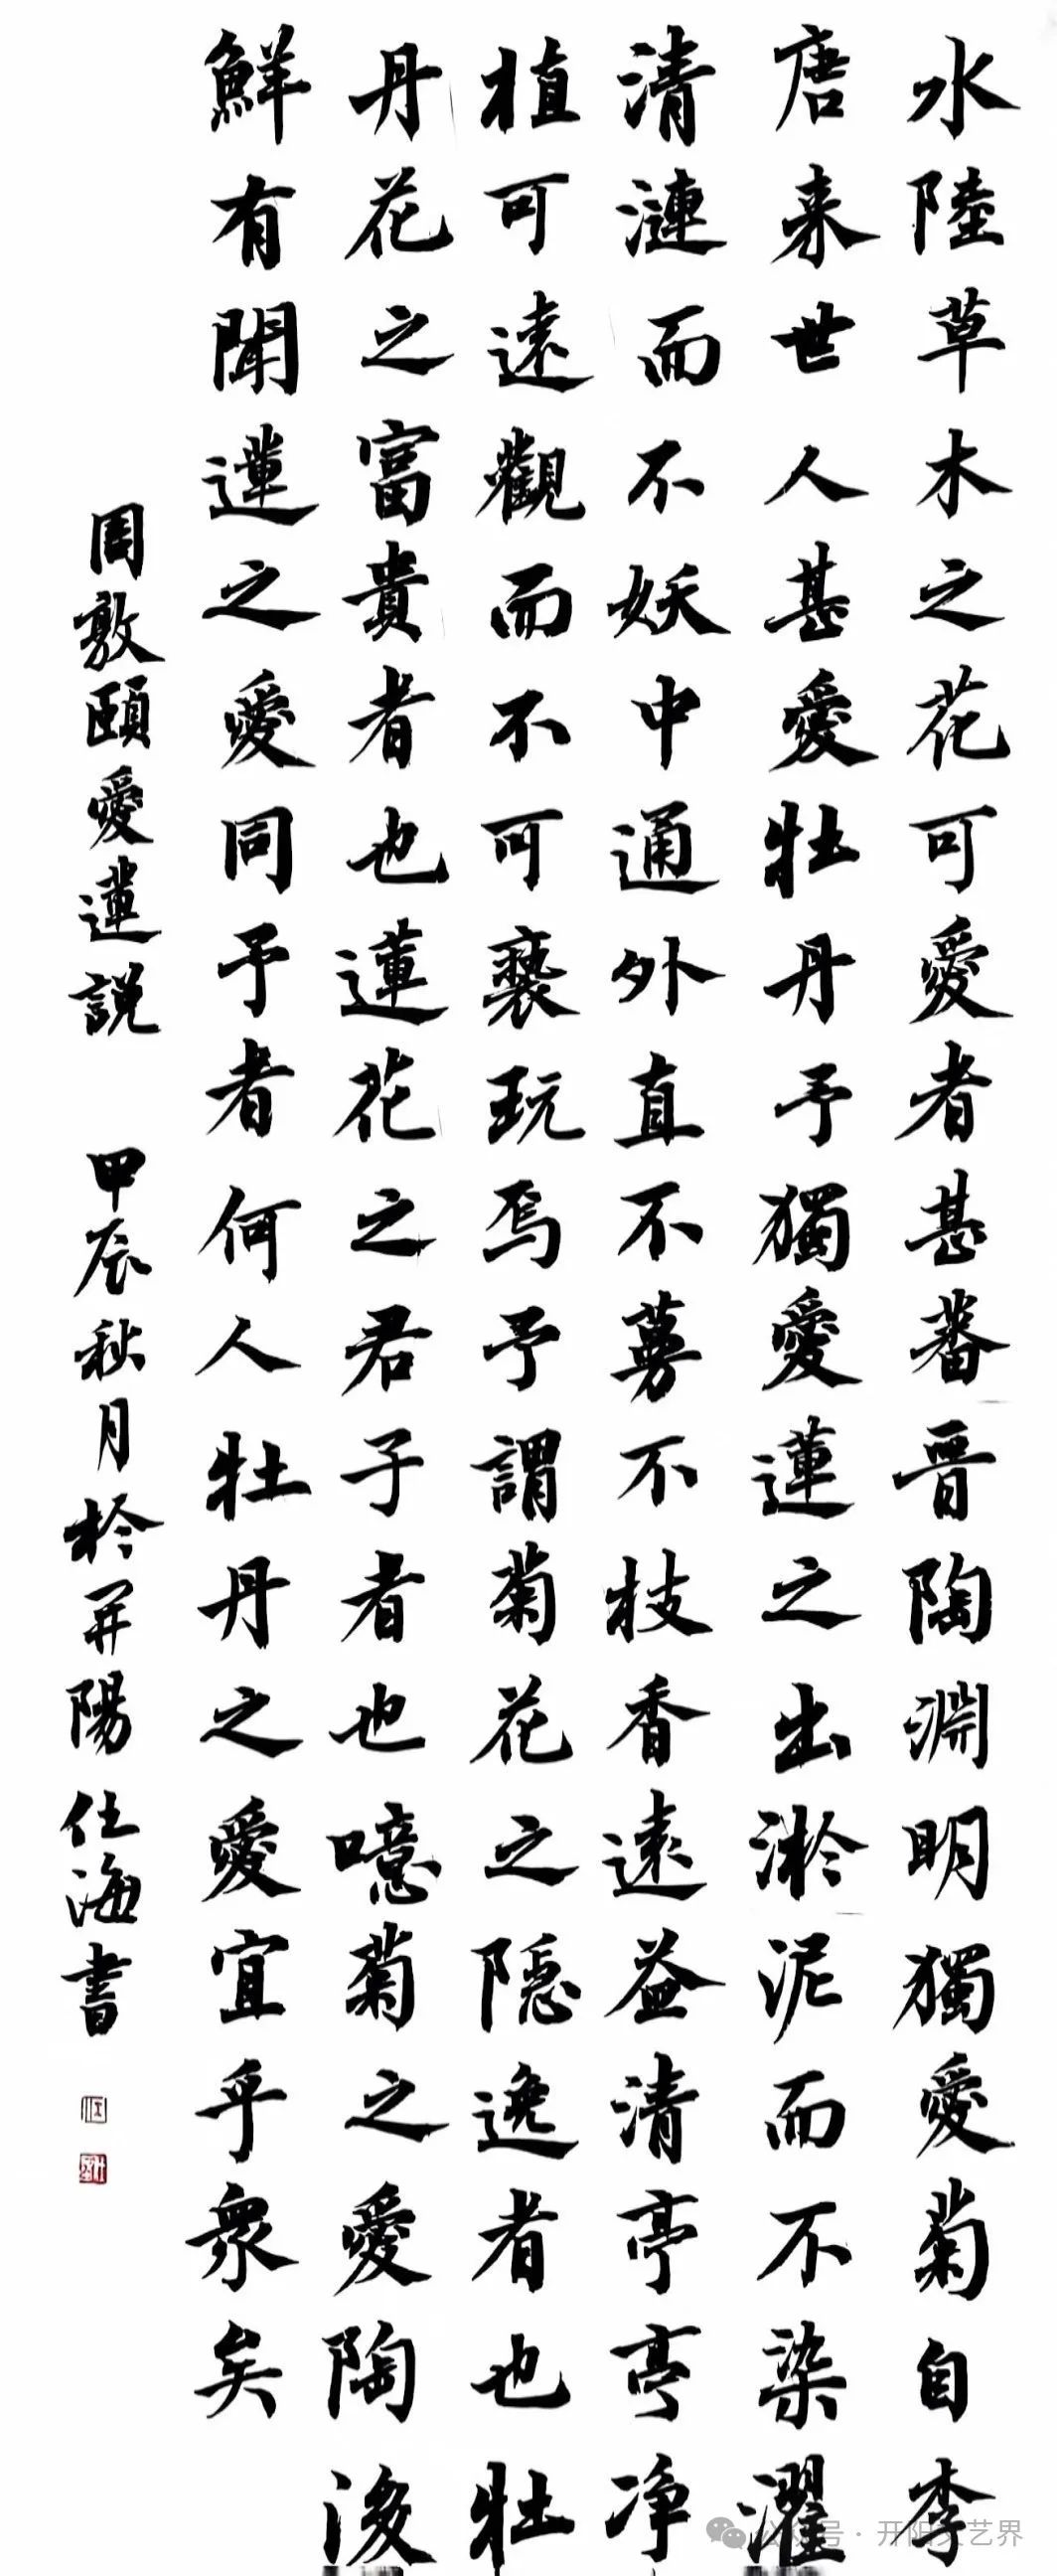 水陸草木之花可愛者甚蕃晉陶淵明獨愛菊自李
唐来世人甚愛牡丹予獨愛蓮之出淤泥而不染濯
清漣而不妖中通外直不蔓不枝香遠益清亭亭净
植可遠觀而不可褻玩焉予謂菊花之隱逸者也牡
丹花之富貴者也蓮花之君子者也噫菊之愛陶後
鮮有聞蓮之愛同予者何人牡丹之愛宜乎衆矣
周敦頤愛蓮説 甲辰秋月於开陽仕海書
公众号 · 开阳文艺界